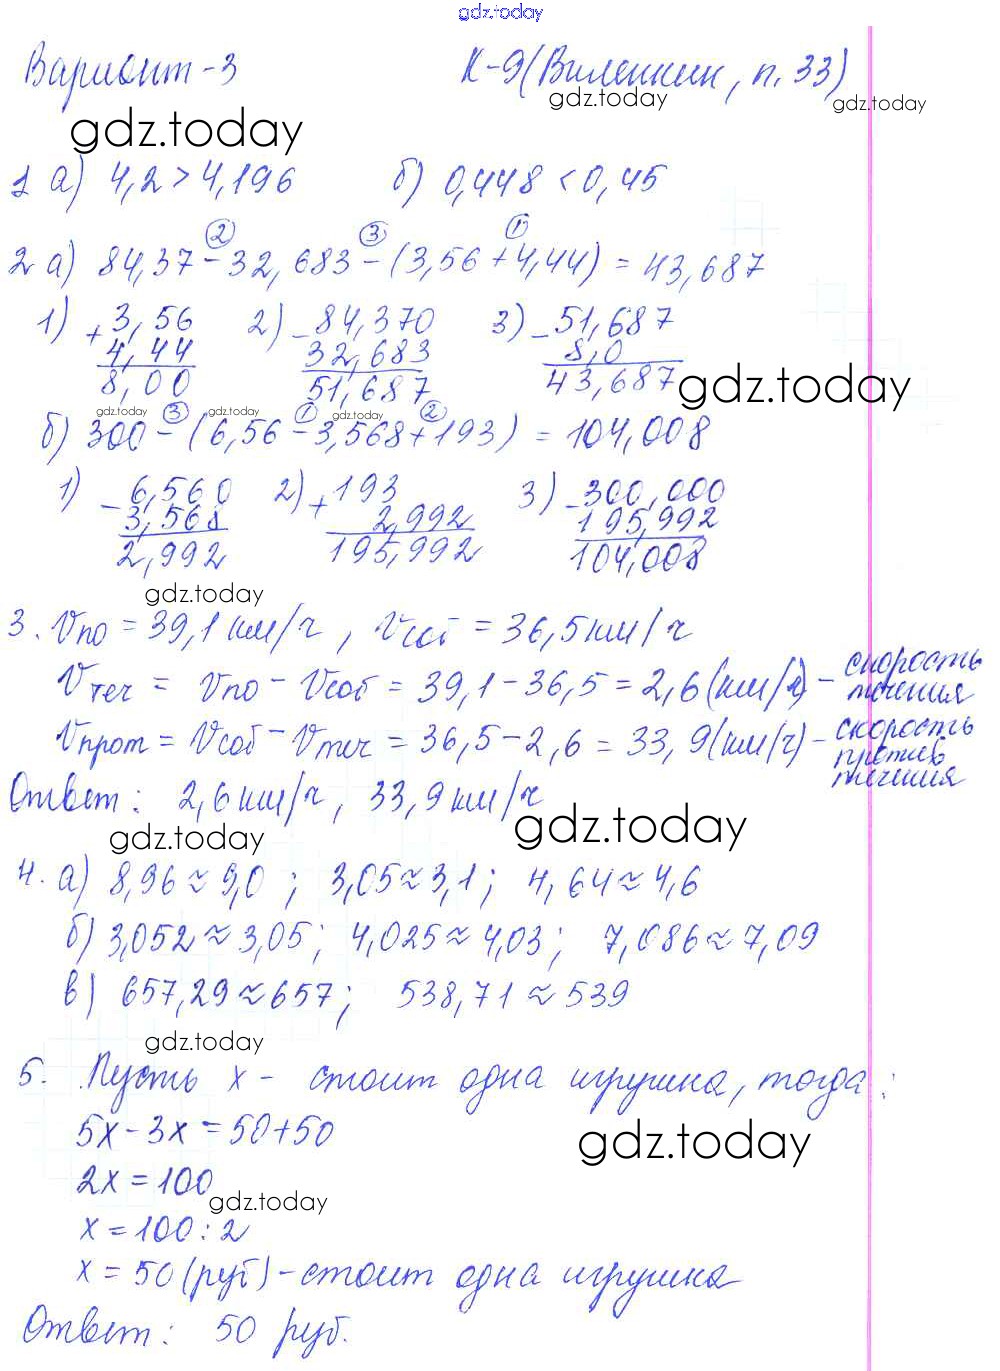 gdz.today
Вариант-3 К-9(Виленкин, п.33)
gdz.today gdz.today gdz.today
1 а) 4,2 > 4,196 б) 0,448 < 0,45
② ③ ①
2 а) 84,37 - 32,683 - (3,56 + 4,44) = 43,687
1) + 3,56 2) - 84,370 3) - 51,687
4,44 32,683 8,0
8,00 51,687 43,687 gdz.today
gdz.today gdz.today gdz.today
③ ① ②
б) 300 - (6,56 - 3,568 + 193) = 104,008
1) - 6,560 2) + 193 3) - 300,000
3,568 2,992 195,992
2,992 195,992 104,008
gdz.today
3. Vпо = 39,1 км/ч, Vсоб = 36,5 км/ч
Vтеч = Vпо - Vсоб = 39,1 - 36,5 = 2,6 (км/ч) - скорость
течения
Vпрот = Vсоб - Vтеч = 36,5 - 2,6 = 33,9 (км/ч) - скорость
против
течения
Ответ: 2,6 км/ч, 33,9 км/ч
gdz.today gdz.today
4. а) 8,96 ≈ 9,0 ; 3,05 ≈ 3,1 ; 4,64 ≈ 4,6
б) 3,052 ≈ 3,05 ; 4,025 ≈ 4,03 ; 7,086 ≈ 7,09
в) 657,29 ≈ 657 ; 538,71 ≈ 539
gdz.today
5. Пусть х - стоит одна игрушка, тогда:
5х - 3х = 50 + 50
gdz.today
2х = 100
gdz.today
х = 100 : 2
х = 50 (руб) - стоит одна игрушка
Ответ: 50 руб.